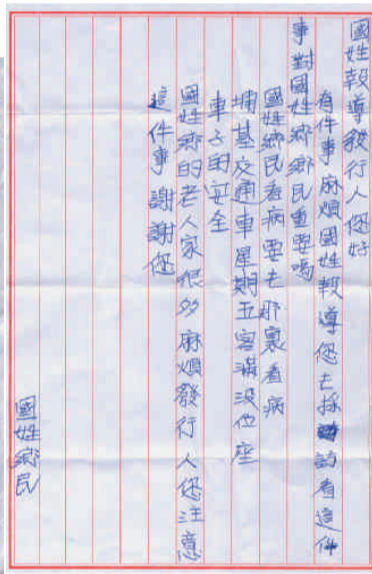 國姓報導發行人您好
有件事麻煩國姓報導您去採訪看這件
事對國姓鄉鄉民重要嗎
國姓鄉民看病要去那裏看病
埔基交通車星期五客滿沒位座
車子的安全
國姓鄉的老人家很多麻煩發行人您注意
這件事謝謝您
國姓鄉民